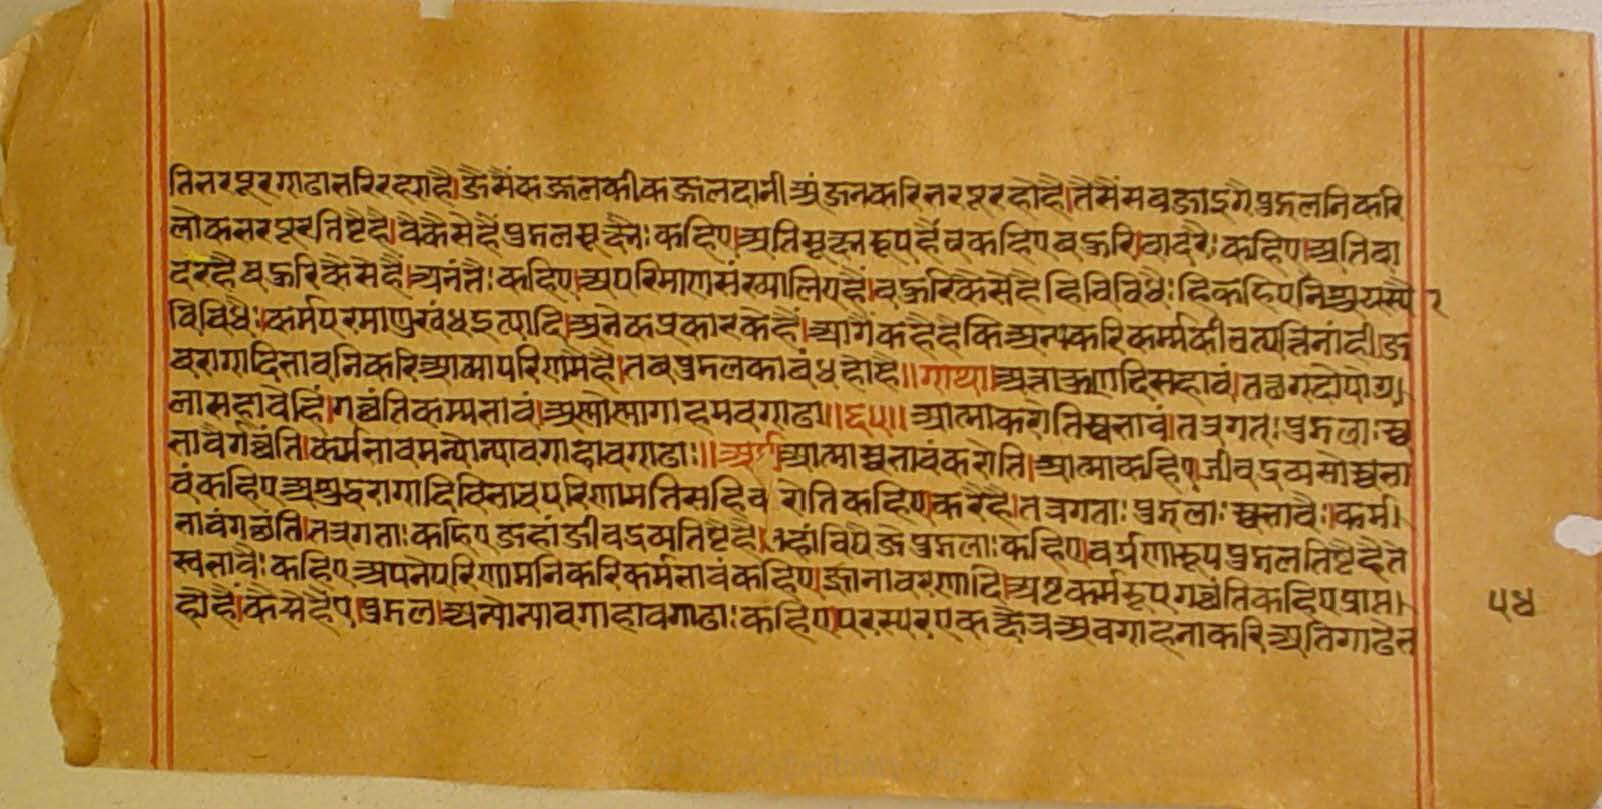 तिभरपूरगाढाभरिरह्याहै।जैसैंकज्जलकीकज्जलदानीअंजनकरिभरपूरहोहै।तैसैंसबजाइगैपुद्गलनिकरि
लोकभरपूरतिष्टैहै।वैकैसेहैंपुद्गलसूक्ष्मैः कहिए।अतिसूक्ष्मरूपहैं।कहिएबहुरि।बादरैः कहिए।अतिबा
दरहैबहुरिकैसेहैं।अनंतैः कहिए।अपरिमाणसंख्यालिएहैं।बहुरिकैसेहै
विविधैः।कर्मपरमाणुखंधइत्यादि।अनेकप्रकारकेहैं।आगैंकहैहैकिअन्यकरिकर्म्मकीउत्पत्तिनांही।ज
बरागादिभावनिकरिआत्मापरिणमैहै।तबपुद्गलकाबंधहोहै॥गाथा।अत्ताकुणदिसहावं।तच्छगदापोग्ग।
लासहावेहिं।गच्छंतिकम्मभावं।अण्णोण्णागाहमवगाढा॥६५॥आत्माकरोतिस्वभावं।तत्रगताः पुद्गलाः स्व
भावैर्गच्छंति।कर्मभावमन्योन्यावगाहावगाढाः॥अर्थ।आत्मास्वभावंकरोति।आत्माकहिए।जीवद्रव्यसोस्वभा
वंकहिएअशुद्धरागादिविभावपरिणाम करोतिकहिए।करैहै।तत्रगताः पुद्गलाः स्वभावैः।कर्म।
भावंगच्छंति।तत्रगताः कहिएजहांजीवद्रव्यतिष्टैहै।तहांविषैजेपुद्गलाः कहिए।वर्गणारूपपुद्गलतिष्टैहैते
स्वभावैः कहिएअपनैपरिणामनिकरिकर्मभावंकहिए।ज्ञानावरणादि।अष्टकर्मरूपगच्छंतिकहिएप्राप्त।
होहैं।कैसेहैंए।पुद्गल।अन्योन्यावगाहावगाढाः कहिए।परस्परएकक्षेत्रअवगाहनाकरिअतिगाढेभ
५४